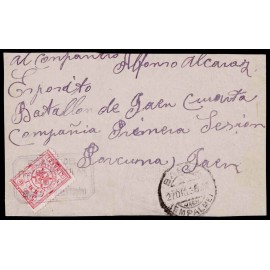 al Conpañero Alfonso Alcaraz
Esposito
Batallon de Jaen Cuarta
Compañia Primera Sesión
Porcuna Jaen